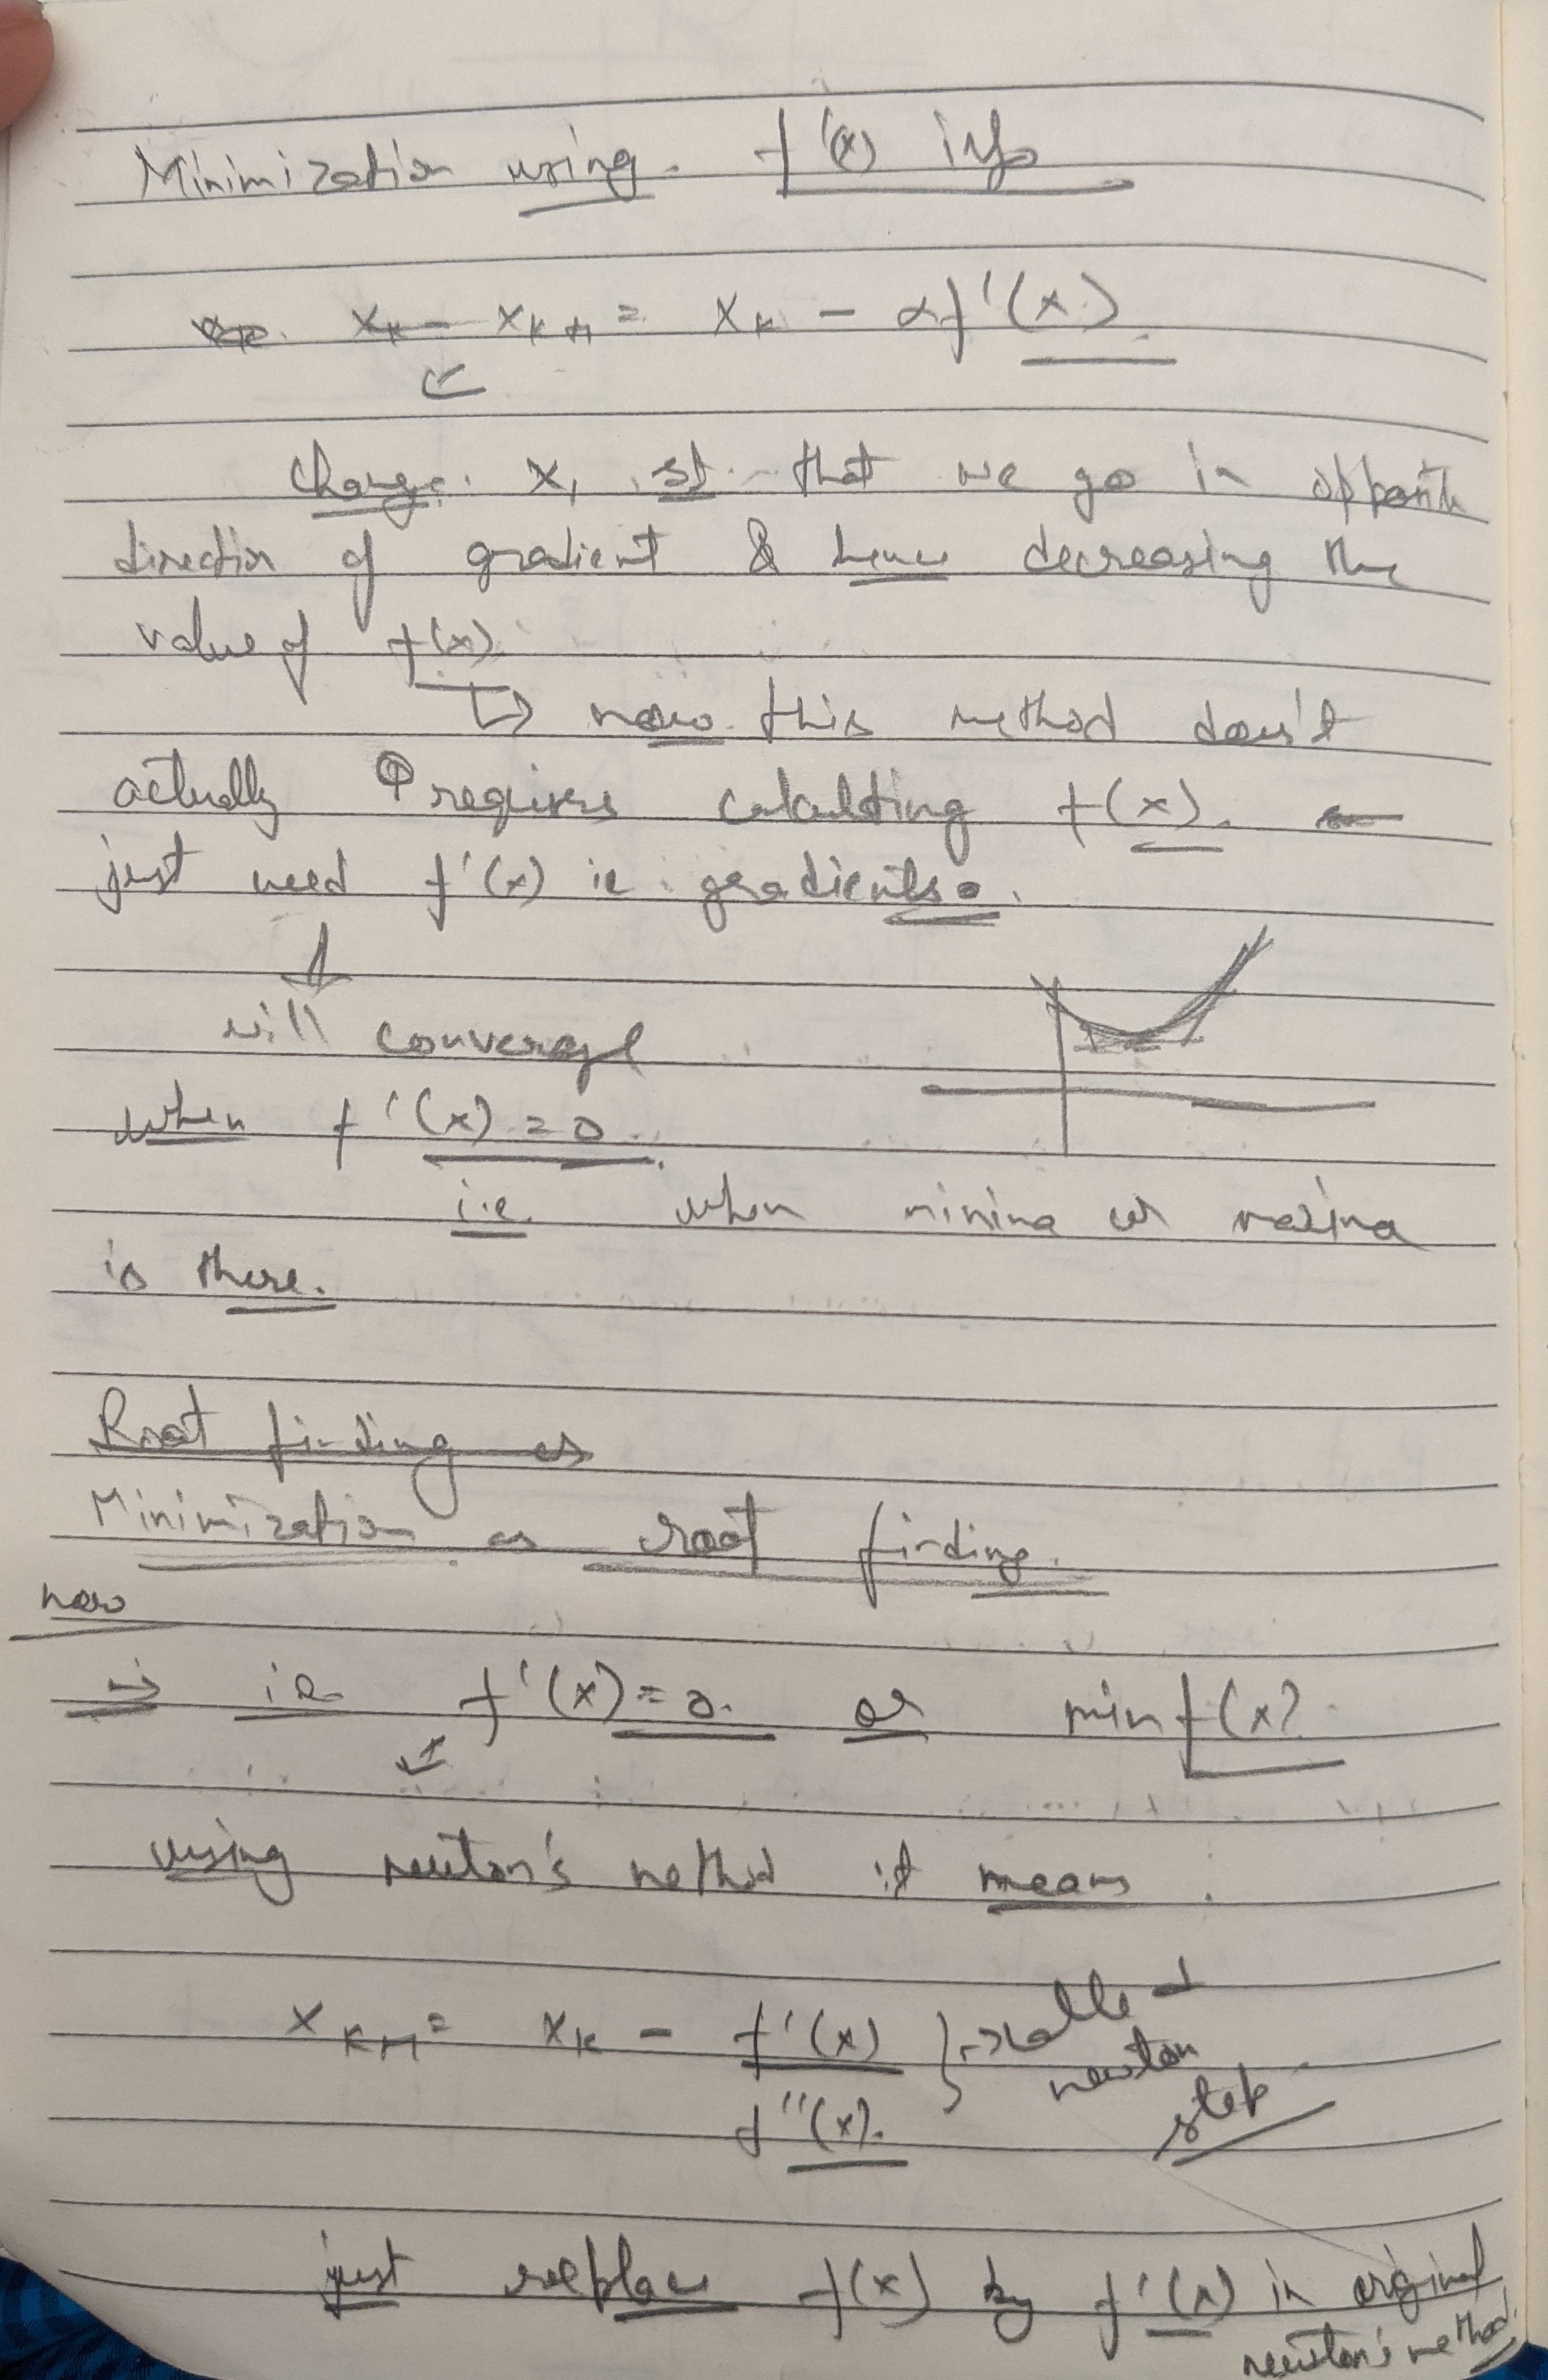 Minimization using f'(x) info
x_k - x_{k+1} = x_k - αf'(x).
Change x, st. that we go in opposite
direction of gradient & hence decreasing the
value of f(x).
↳ now this method don't
actually requires calculating f(x).
just need f'(x) ie gradients.
will converge
when f'(x) = 0.
i.e. when minima or maxima
is there.
Root finding as
Minimization as root finding.
now
⇒ ie f'(x) = 0. or min f(x)
using newton's method it means.
x_{k+1} = x_k - f'(x) / f''(x). } → called
newton
step
just replace f(x) by f'(x) in original
newton's method.